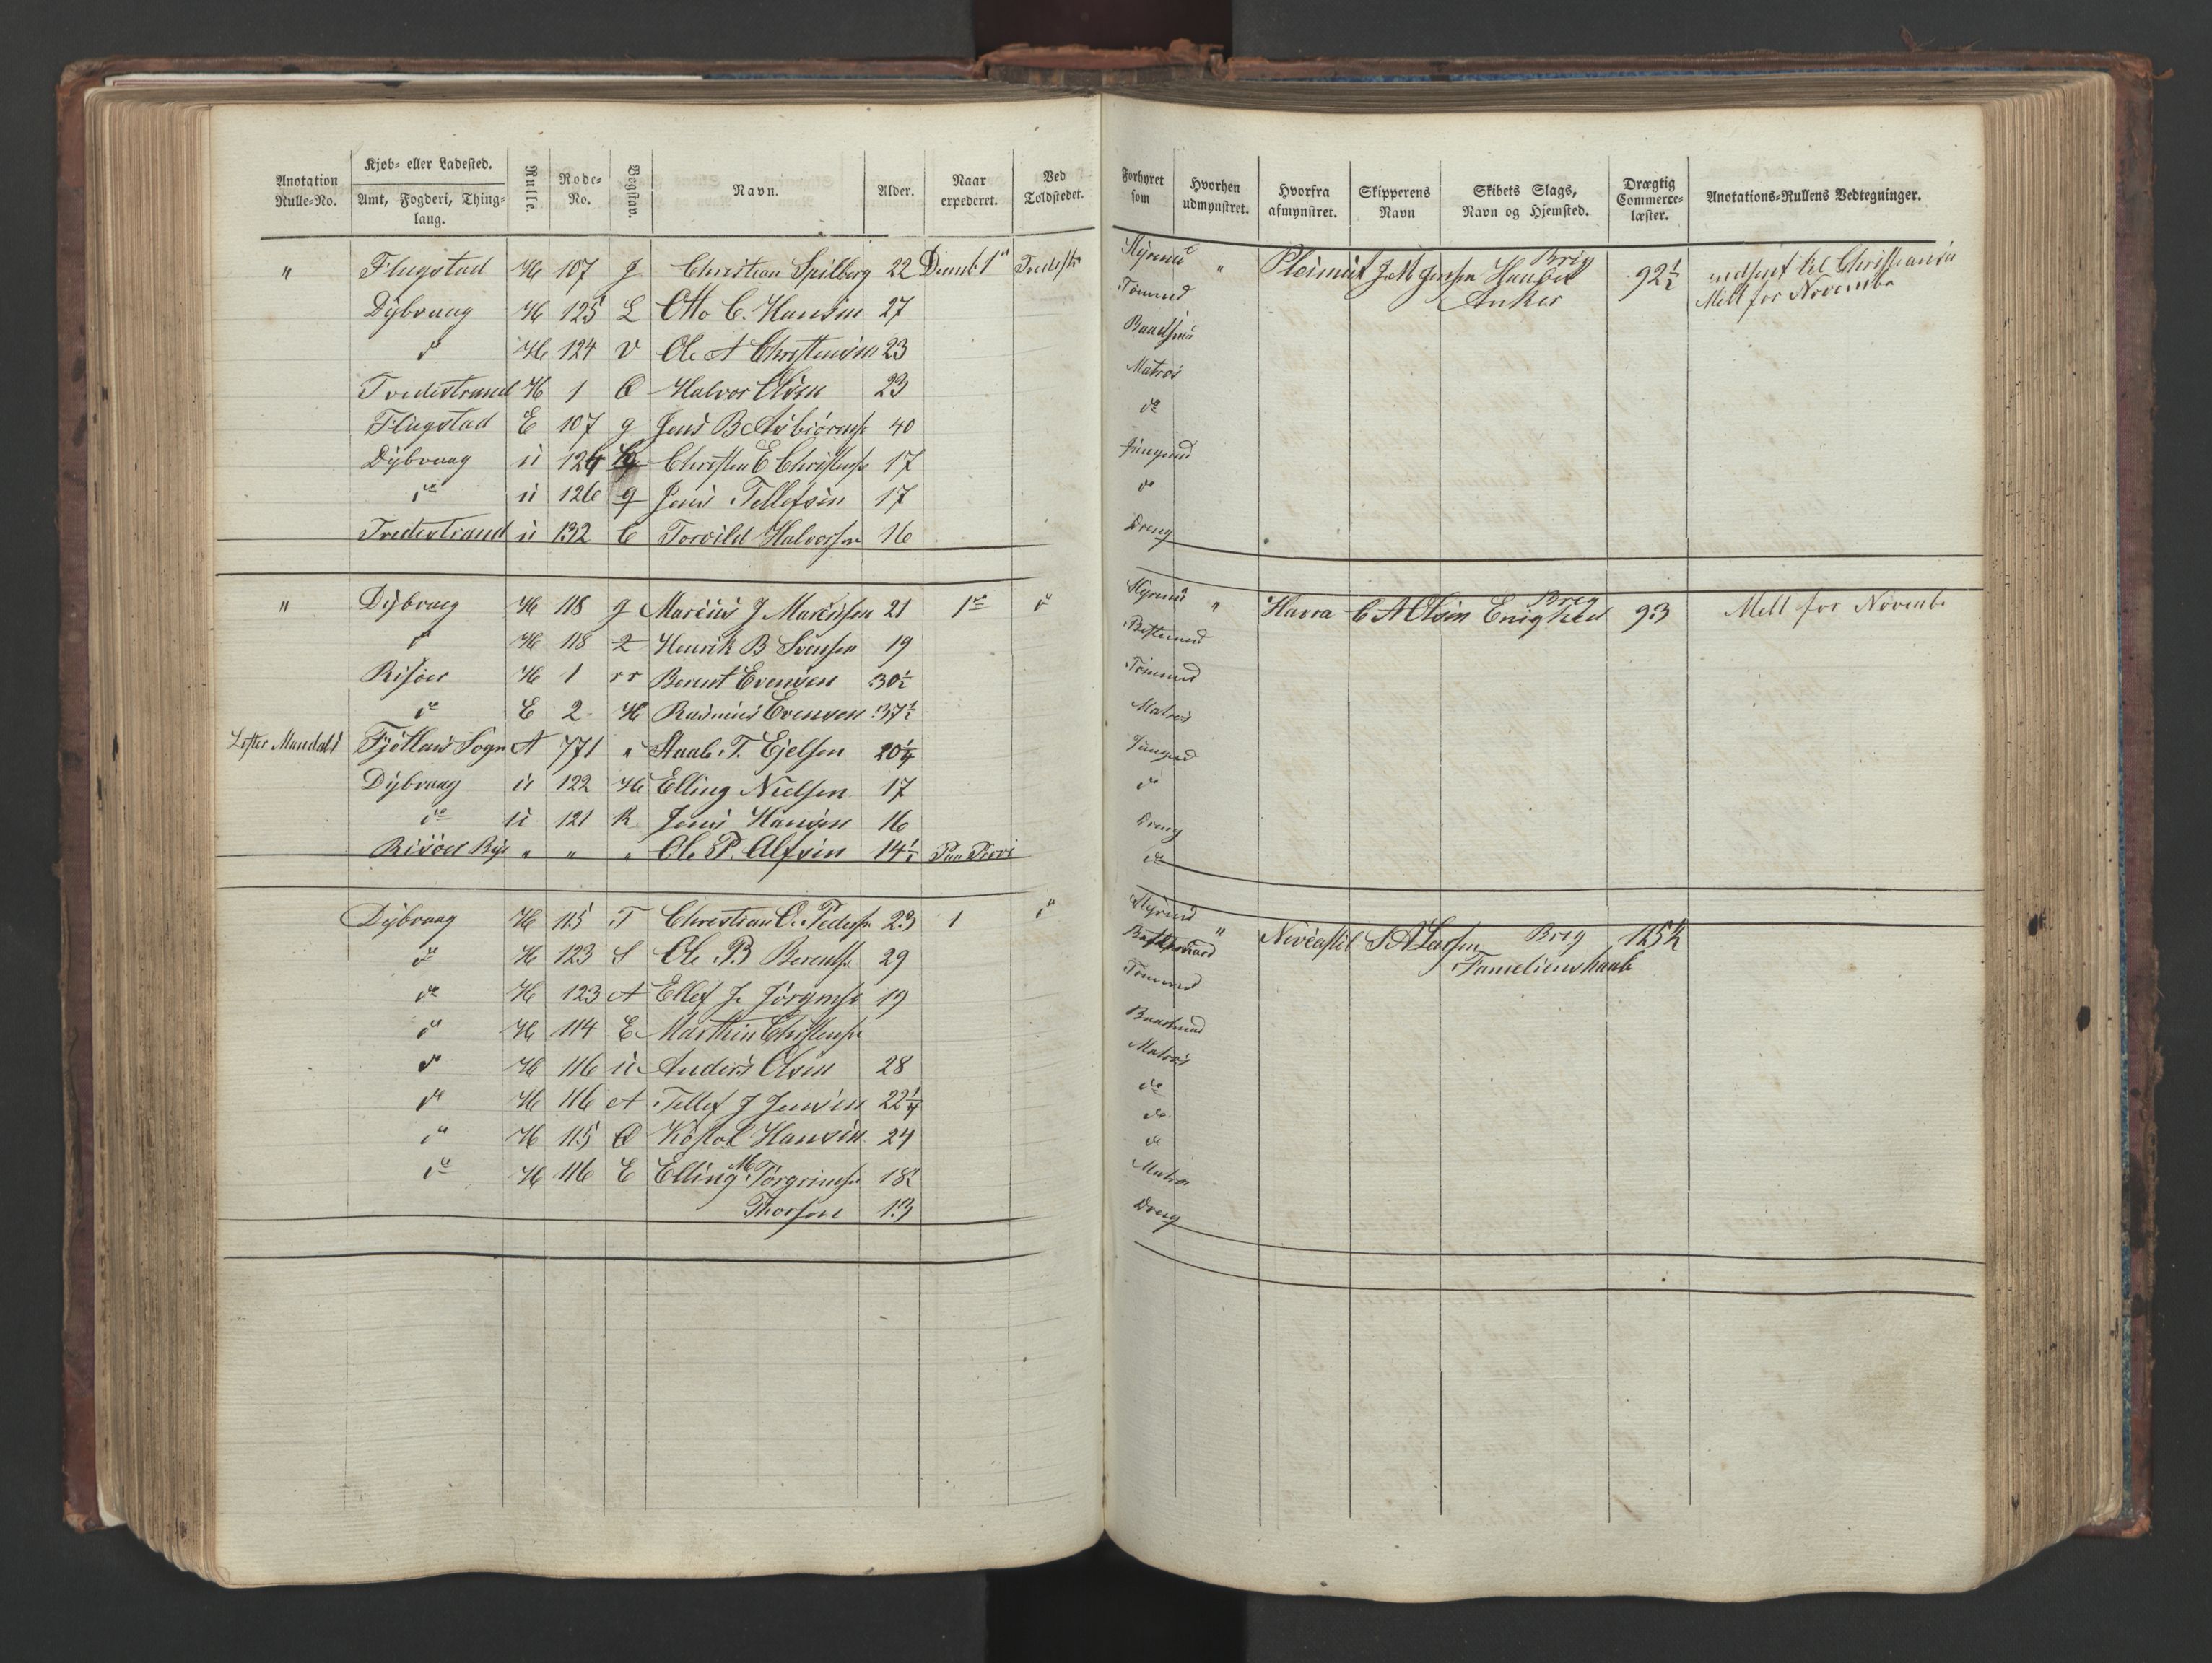 Anotation Rulle-No. | Kjøb- eller Ladested. Amt, Fogderi, Thinglaug. | Rulle. | Rode-No. | Bogstav. | Navn. | Alder. | Naar expederet. | Ved Toldstedet. | Forhyret som | Hvorhen udmynstret. | Hvorfra afmynstret. | Skipperens Navn | Skibets Slags, Navn og Hjemsted. | Drægtig Commerce-læster. | Anotations-Rullens Vedtegninger.
" Flugstad H 107 J Christian Spilberg 22 Decemb. 1 Tvedestr Styrmd " Pleimut J M Jensen Brig Haabet Anker 92½ indsent til Christiania Mell for Novembe
Dybvaag H 125 L Otto C. Hansen 27 Tömmd
do H 124 V Ole A Christensen 23 Baadsmd
Tvedestrand H 1 O Halvor Olsen 23 Matros
Flugstad E 107 g Jens B Asbiörnse 40 do
Dybvaag ü 124 Christen E Christense 17 Jüngmd
do ü 126 g Jens Tellefsen 17 do
Tvedestrand ü 132 C Torvild Halvorsen 16 Dreng
" Dybvag H 118 g Marcus J Marcussen 21 1 do Styrmd " Havra C A Olsen Brig Enighed 93 Mell for Novemb.
do H 118 Z Henrik B Svensen 19 Bestemand
Risöer H 1 rr Berent Evensen 30½ Tömmd
do E 2 H Rasmus Evensen 37½ Matros
Lister Mandals Fjötland Sogn A 771 " Staale T. Ejelsen 20¼ Jüngmd
Dybvaag ü 122 H Elling Nielsen 17 do
do ü 121 R Jens Hansen 16 Dreng
Risöer " " " Ole P. Alfsen 14½ Paa Pröve do
Dybvaag H 115 T Christian O. Pederse 23 1 do Styrmd " Neucastel S A Larsen Brig Familiens haab 125½
do H 123 S Ole B Berentse 29 Bestemand
do H 123 A Ellef J. Jörgense 19 Tömmd
do H 114 E Marthin Christense Baadsmd
do H 116 ü Anders Olsen 28 Matros
do H 116 A Tellef J Jensen 22¼ do
do H 115 O Köstol Hansen 24 do
do
do H 116 E Elling M. Torgrimse 18½ Matros
Thorsen 13 Dreng